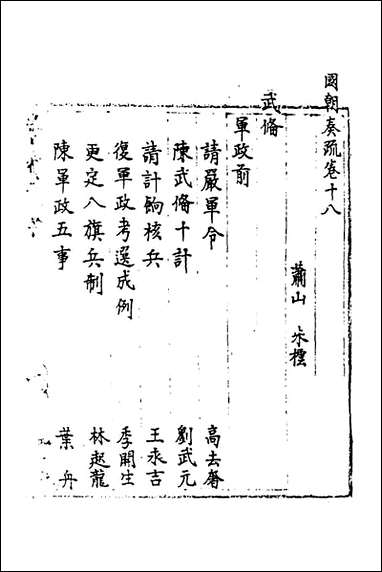 國朝奏疏卷十八
蕭山 朱橒
武備
軍政前
請嚴軍令 高去奢
陳武備十計 劉武元
請計餉核兵 王永吉
復軍政考選成例 季開生
更定八旗兵制 林起龍
陳軍政五事 葉舟